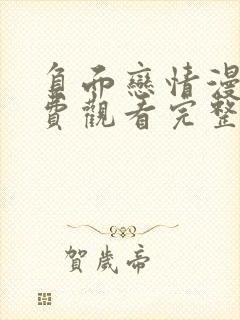 負而戀情漫
費觀看完整
賀歲帝